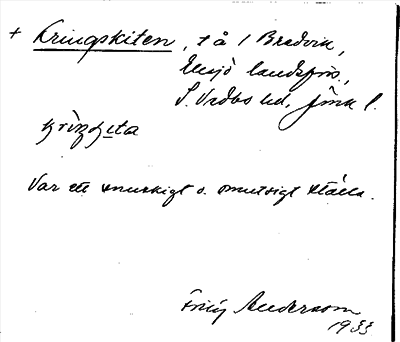 + Kringskiten, t å 1 Bredvik,
Eksjö landsfös.,
S. Vedbo hd, Jönk l.
Var ett snuskigt o. smutsigt ställe.
Andersson
1933